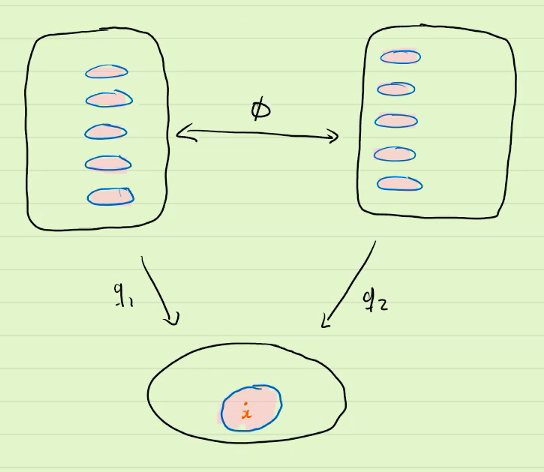 φ
q₁
q₂
x